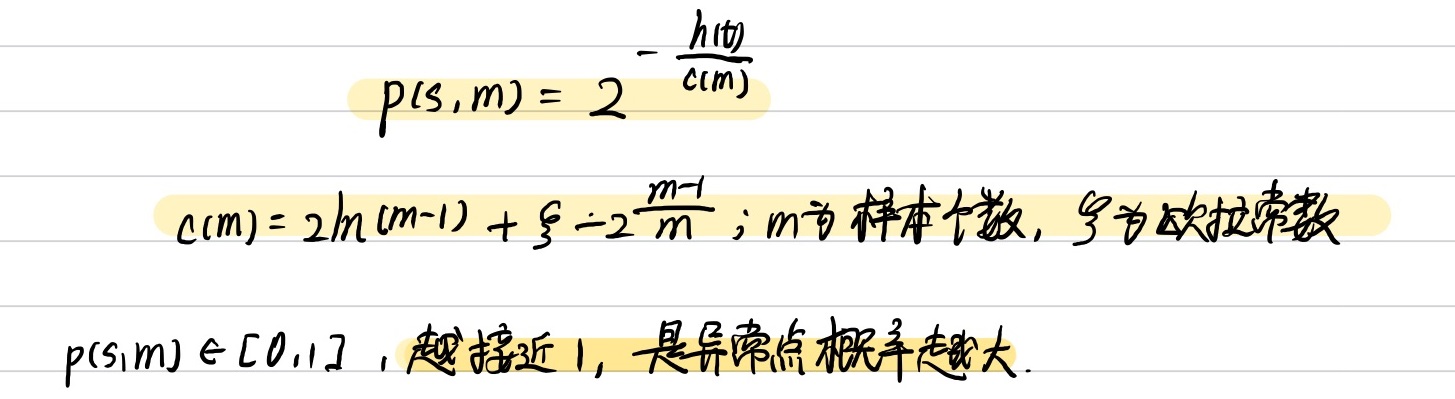 p(s,m) = 2^{-\frac{h(t)}{c(m)}}
c(m) = 2ln(m-1) + ξ - 2\frac{m-1}{m} ; m为样本个数, ξ为欧拉常数
p(s,m) ∈ [0,1] , 越接近1, 是异常点概率越大.